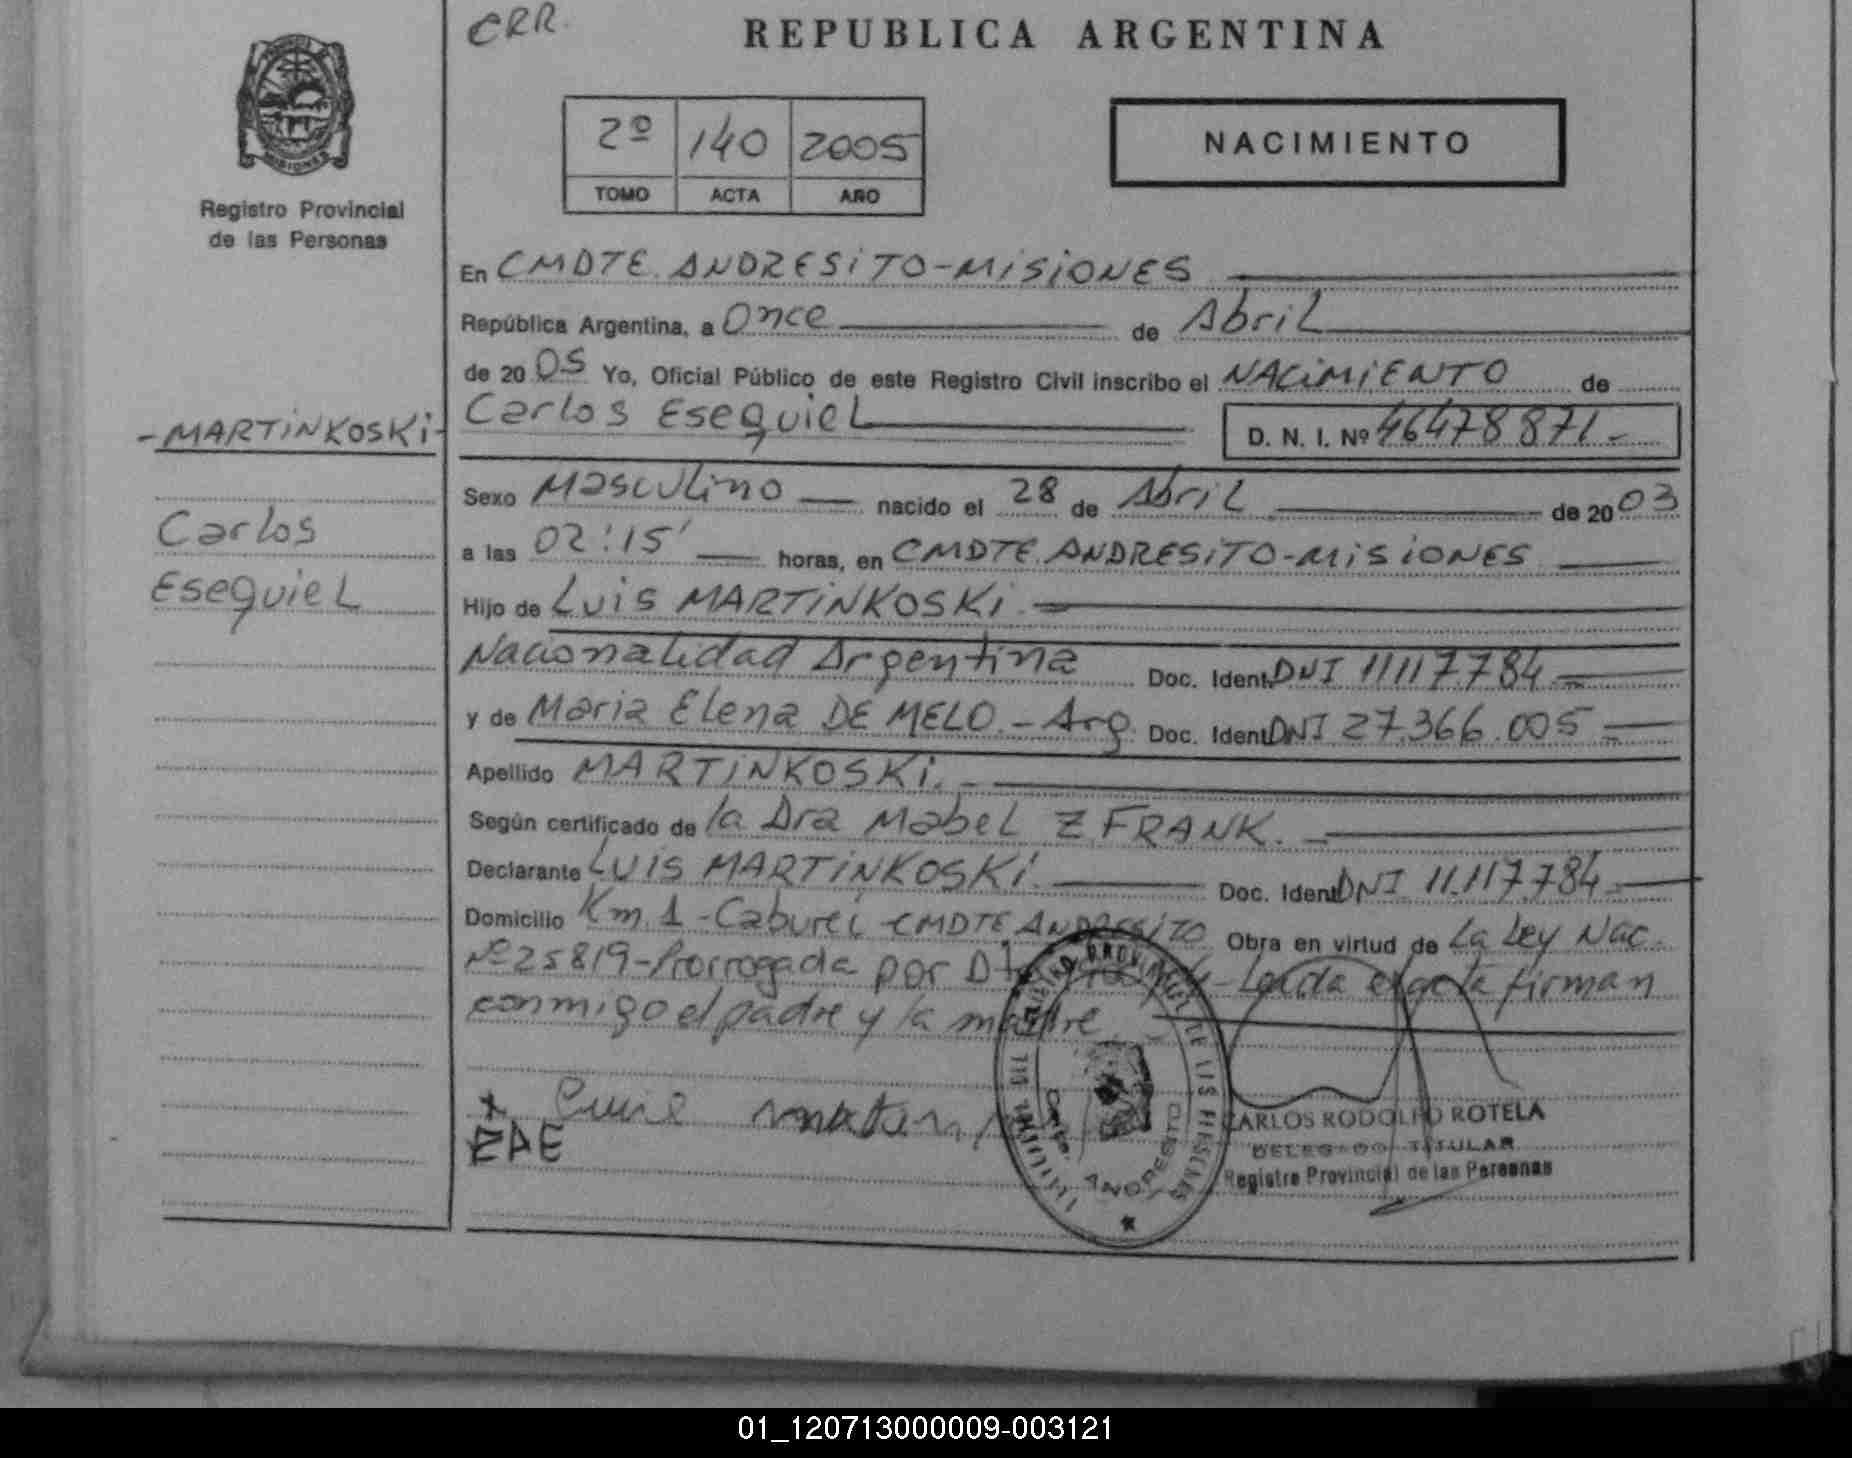 CRR.
REPUBLICA ARGENTINA
MISIONES
Registro Provincial
de las Personas
2º 140 2005
TOMO ACTA AÑO
NACIMIENTO
En CMDTE. ANDRESiTO-MiSiONES
República Argentina, a Once de Abril
de 20 05 Yo, Oficial Público de este Registro Civil inscribo el NACiMiENTO de
Carlos Esequiel D. N. I. Nº 46478871-
-MARTiNKOSKi-
Carlos
Esequiel
Sexo Masculino nacido el 28 de Abril de 20 03
a las 02:15' horas, en CMDTE. ANDRESiTO-MiSiONES
Hijo de Luis MARTiNKOSKi.
Nacionalidad Argentina Doc. Ident. DNI 11117784
y de Maria Elena DE MELO.- Arg. Doc. Ident. DNI 27.366.005
Apellido MARTiNKOSKi.-
Según certificado de la Dra Mabel Z FRANK.-
Declarante LUiS MARTiNKOSKi. Doc. Ident. DNI 11.117.784
Domicilio Km. 1 -Caburei -CMDTE ANDRESiTO Obra en virtud de La Ley Nac.
Nº 25819-Prorrogada por - Leida el acta firman
conmigo el padre y la madre
CARLOS RODOLFO ROTELA
DELEGADO TITULAR
Registro Provincial de las Personas
ANDRESITO
01_120713000009-003121